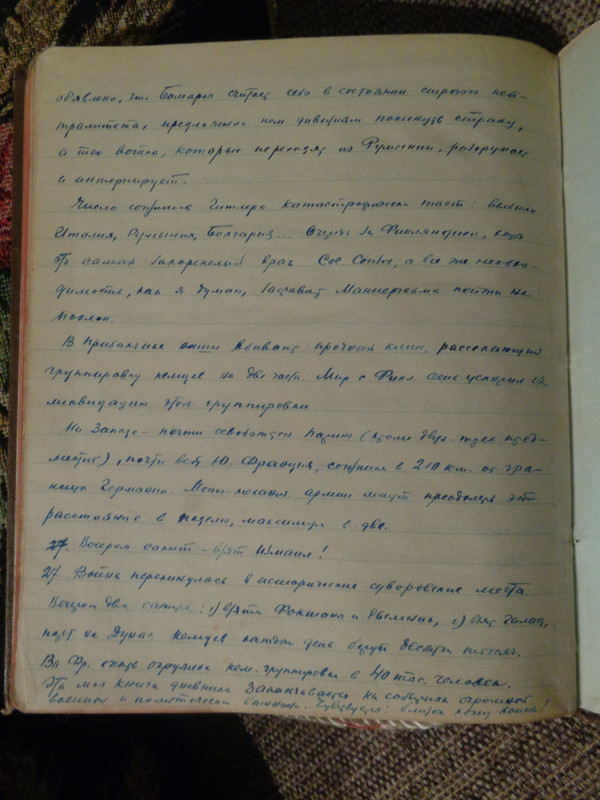 объявлено, что Болгария считает себя в состоянии строгого нейт-
ралитета, предложила нем. дивизиям покинуть страну,
а те войска, которые переходят из Румынии, разоружает
и интернирует.
Число союзников Гитлера катастрофически тает: выбыли
Италия, Румыния, Болгария... Очередь за Финляндией, хотя
это самый закоренелый враг Сов. Союза, а все же необхо-
димость, как я думаю, заставит Маннергейма пойти на
поклон.
В Прибалтике наши вбивают прочный клин, рассекающий
группировку немцев на две части. Мир с Финл. очень ускорил бы
ликвидацию этой группировки.
На Западе - почти освобожден Париж (кроме двух-трех пред-
местий), почти вся Ю. Франция, союзники в 210 км. от гра-
ницы Германии. Мото-механиз. армии могут преодолеть это
расстояние в неделю, максимум в две.
27. Вечером салют - взят Измаил!
27 Война перекинулась в исторические суворовские места.
Вечером два салюта: 1) взяты Фокшаны и Рымник, 2) взят Галац,
порт на Дунае. Немцев каждый день берут десятки тысяч.
Во Фр. опять окружена нем. группировка в 40 тыс. человек.
Эта моя книга дневника заканчивается на событиях огромной
военной и политической важности. Чувствуется: близок конец войны!